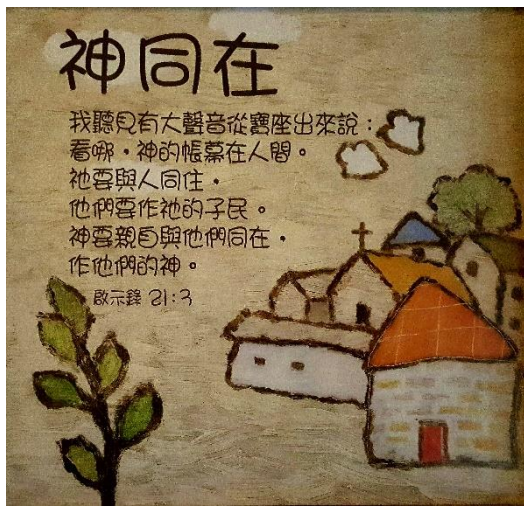 神同在
我聽見有大聲音從寶座出來說：
看哪，神的帳幕在人間。
祂要與人同住，
他們要作祂的子民。
神要親自與他們同在，
作他們的神。
啟示錄 21:3